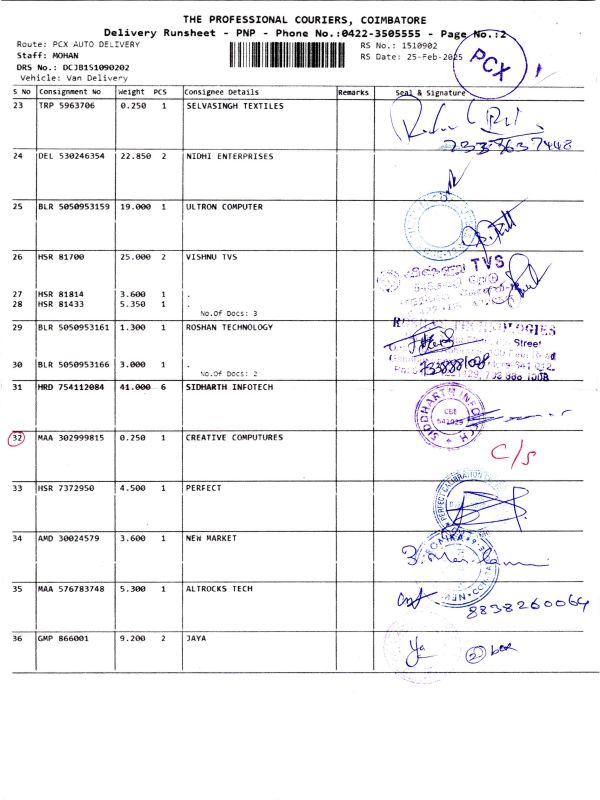 THE PROFESSIONAL COURIERS, COIMBATORE
Delivery Runsheet - PNP - Phone No.:0422-3505555 - Page No.:2
Route: PCX AUTO DELIVERY
RS No.: 1510902
Staff: MOHAN
RS Date: 25-Feb-2025
PCX
DRS No.: DCJB151090202
Vehicle: Van Delivery
S No Consignment No Weight PCS Consignee Details Remarks Seal & Signature
23 TRP 5963706 0.250 1 SELVASINGH TEXTILES
24 DEL 530246354 22.850 2 NIDHI ENTERPRISES
25 BLR 5050953159 19.000 1 ULTRON COMPUTER
26 HSR 81700 25.000 2 VISHNU TVS
TVS
27 HSR 81814 3.600 1 .
28 HSR 81433 5.350 1 .
No.Of Docs: 3
29 BLR 5050953161 1.300 1 ROSHAN TECHNOLOGY
Street
30 BLR 5050953166 3.000 1 .
No.Of Docs: 2
31 HRD 754112084 41.000 6 SIDHARTH INFOTECH
SIDDHARTH INFOTECH
CBE
32 MAA 302999815 0.250 1 CREATIVE COMPUTURES
C/S
33 HSR 7372950 4.500 1 PERFECT
34 AMD 30024579 3.600 1 NEW MARKET
35 MAA 576783748 5.300 1 ALTROCKS TECH
8838260064
36 GMP 866001 9.200 2 JAYA
2 box